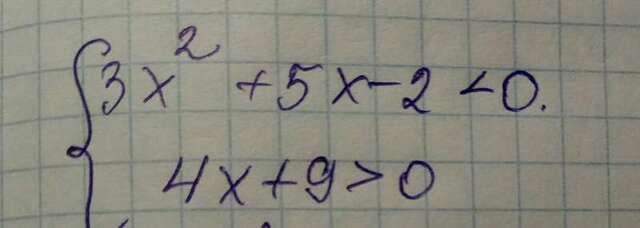 3x² + 5x - 2 < 0.
4x + 9 > 0